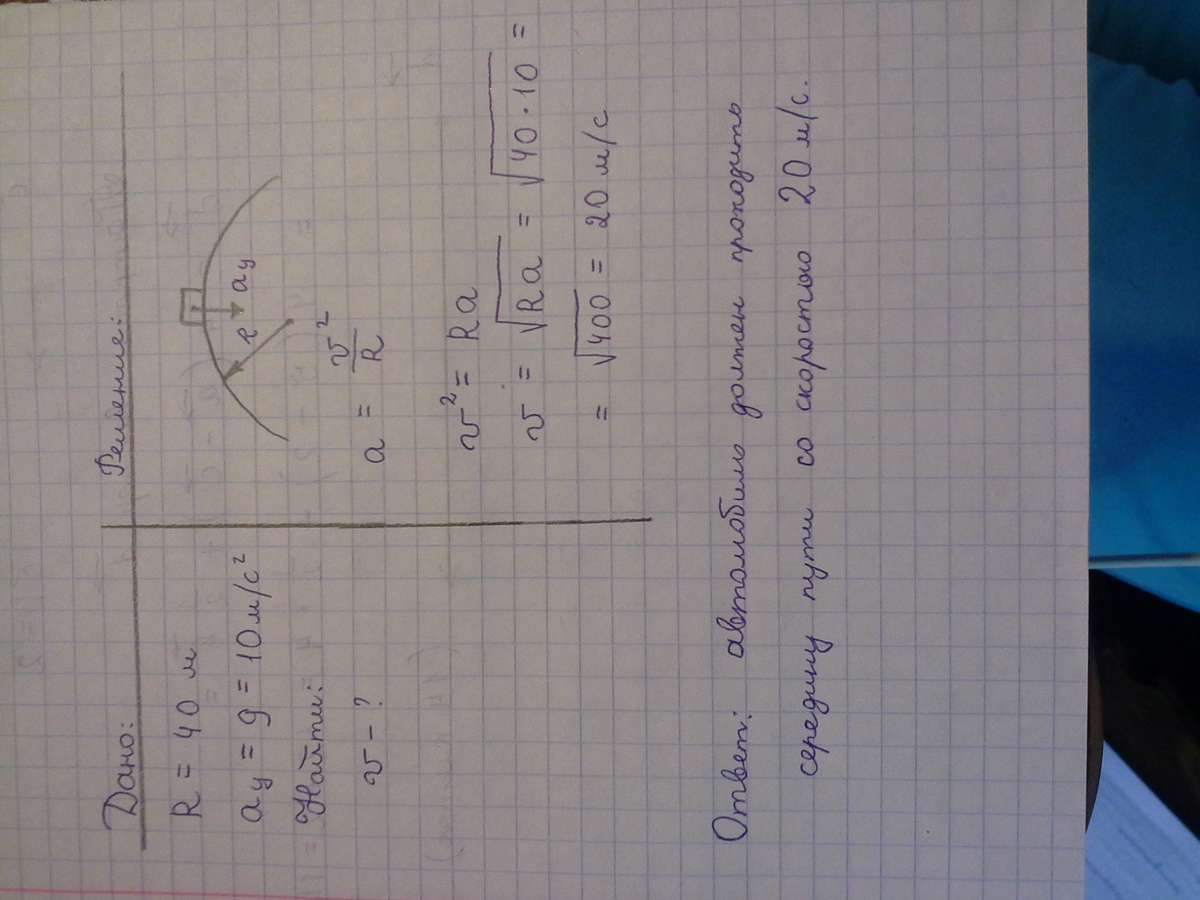 Дано:
R = 40 м
aу = g = 10 м/с²
Найти:
v - ?
Решение:
R aу
a = v²/R
v² = Ra
v = √Ra = √40 · 10 =
= √400 = 20 м/с
Ответ: автомобиль должен проходить
середину пути со скоростью 20 м/с.